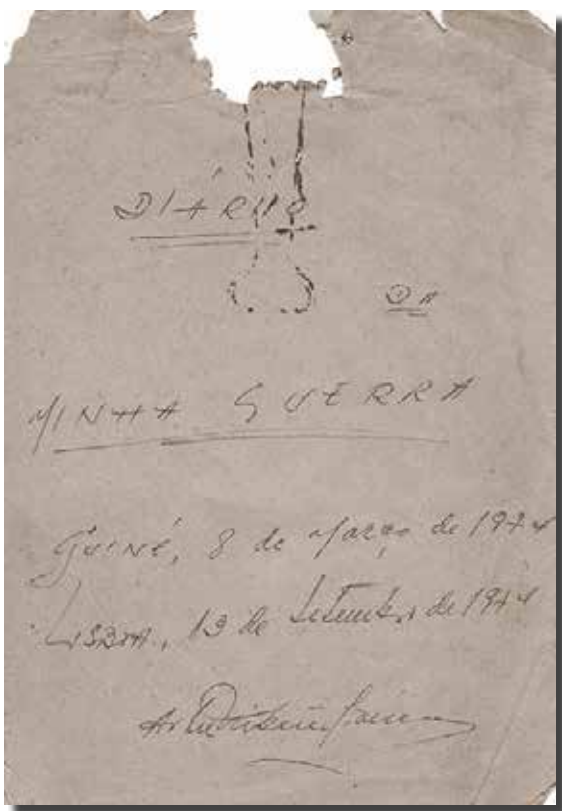 DIÁRIO
DA
MINHA GUERRA
Guiné, 8 de Março de 1974
LISBOA, 13 de Setembro de 1974